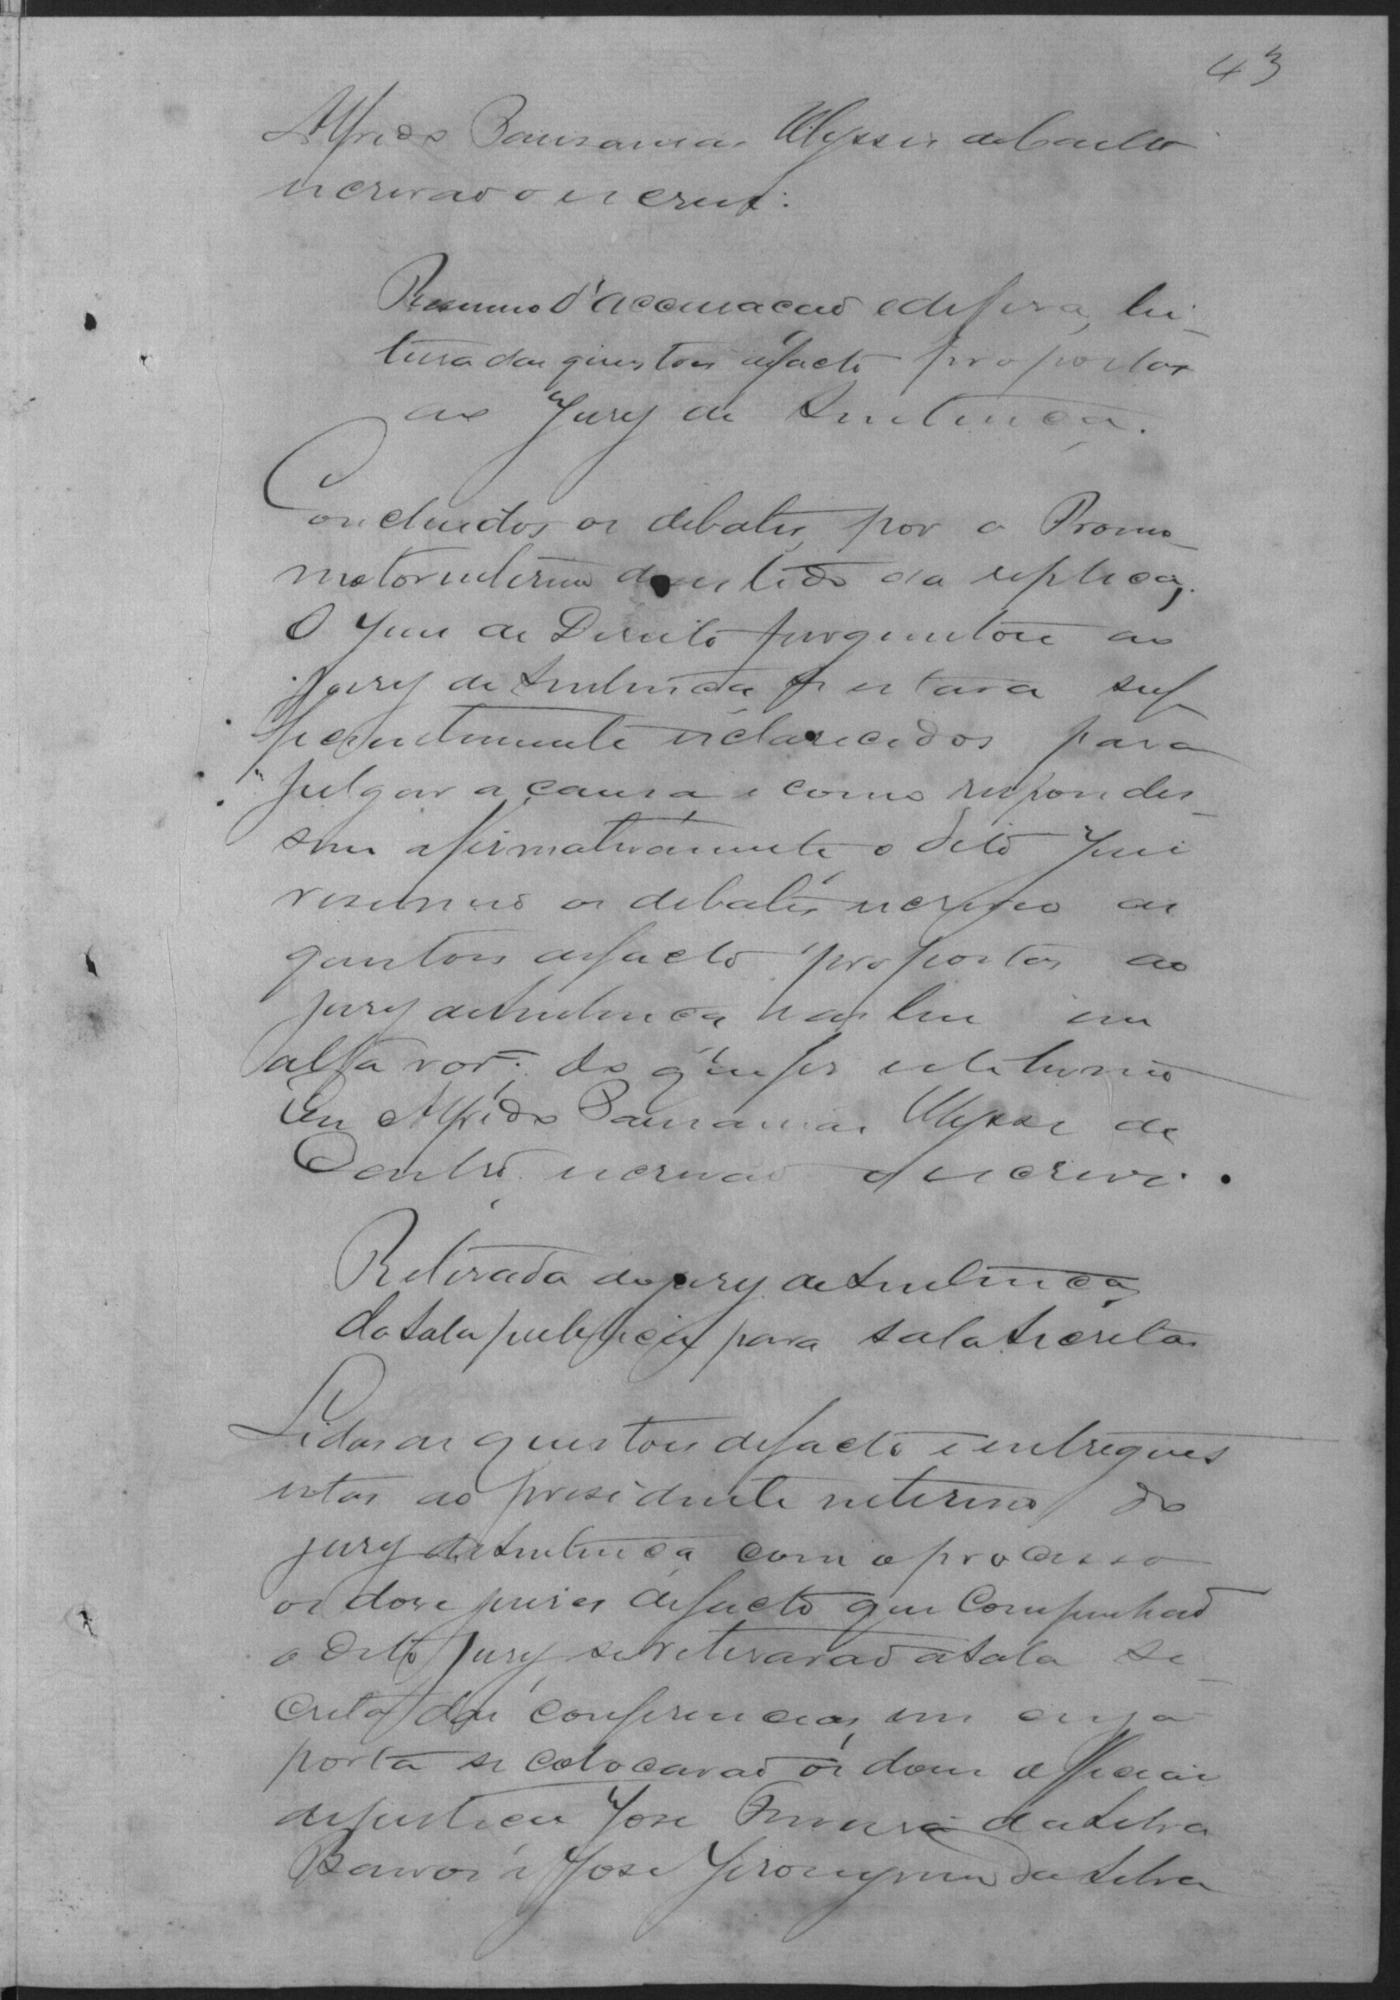 43
Alfredo Pausanias Ulysses de Castro
escrivão o escrevi:
Resumo d'accusacão e defesa, lei-
tura das questões de facto propostas
ao Jury de Sentença.
Concluidos os debates, por o Promo-
motor interino desistido da replica,
O Juiz de Direito perguntou ao
Jury de Sentença se estava suf
ficientemente esclarecidos para
julgar a causa e como respondes-
sem afirmativamente o dito Juiz
resumio os debates escreveo as
questões de facto propostas ao
jury de sentença e as leu em
alta voz. do que fiz este termo
Eu Alfredo Pausanias Ulysses de
Castro, escrivão o escrevi.
Retirada do jury de Sentença,
da sala publica para sala secreta
Lidas as questões de facto e entregues
estas ao presidente interino do
jury de Sentença com o processo
os doze juizes de facto que compunhão
o dito Jury se retirarão a sala se-
creta das conferencias, em cuja
porta se colocarão os dous officiaes
de justica José Ferreira da Silva
Barros e José Jeronymo da Silva